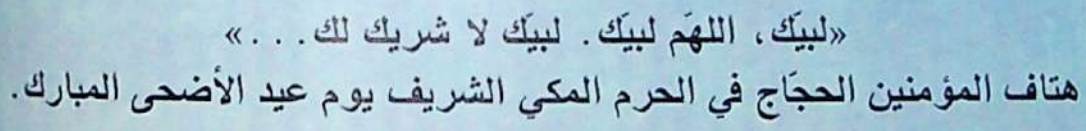 «لبيَك، اللهَم لبيَك. لبيَك لا شريك لك...»
هتاف المؤمنين الحجَاج في الحرم المكي الشريف يوم عيد الأضحى المبارك.